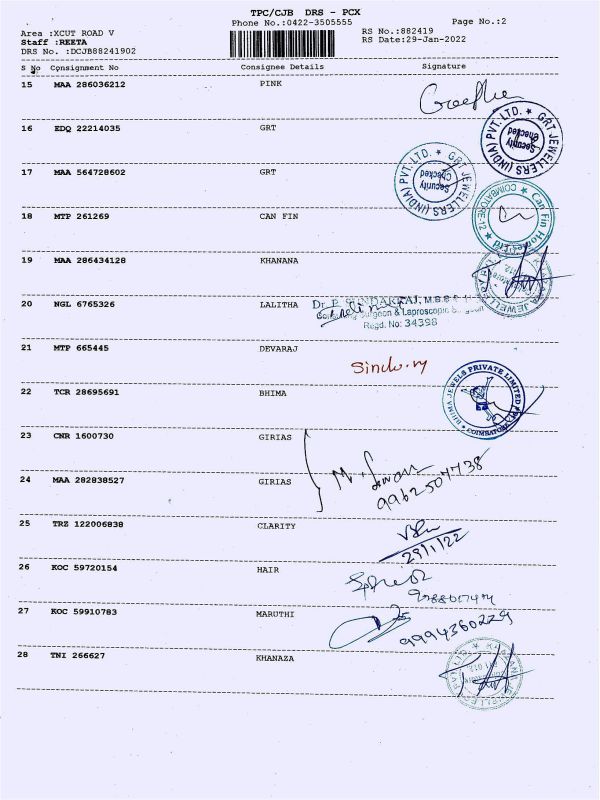 TPC/CJB DRS - PCX
Phone No.:0422-3505555 Page No.:2
Area :XCUT ROAD V RS No.:882419
Staff :REETA RS Date:29-Jan-2022
DRS No. :DCJB88241902
S No Consignment No Consignee Details Signature
15 MAA 286036212 PINK
16 EDQ 22214035 GRT
GRT JEWELLERS (INDIA) PVT. LTD. ★ Security Checked
17 MAA 564728602 GRT
GRT JEWELLERS (INDIA) PVT. LTD. ★ Security Checked
18 MTP 261269 CAN FIN
Can Fin Homes Ltd ★ COIMBATORE-12 ★
19 MAA 286434128 KHANANA
20 NGL 6765326 LALITHA
Dr. P. SUNDARRAJ, M.B.B.S
Consulting Surgeon & Laproscopic Surgeon
Regd. No: 34398
21 MTP 665445 DEVARAJ
22 TCR 28695691 BHIMA
BHIMA JEWELS PRIVATE LIMITED ★ COIMBATORE
23 CNR 1600730 GIRIAS
24 MAA 282838527 GIRIAS
9962507738
25 TRZ 122006838 CLARITY
29/1/22
26 KOC 59720154 HAIR
27 KOC 59910783 MARUTHI
9994360229
28 TNI 266627 KHANAZA